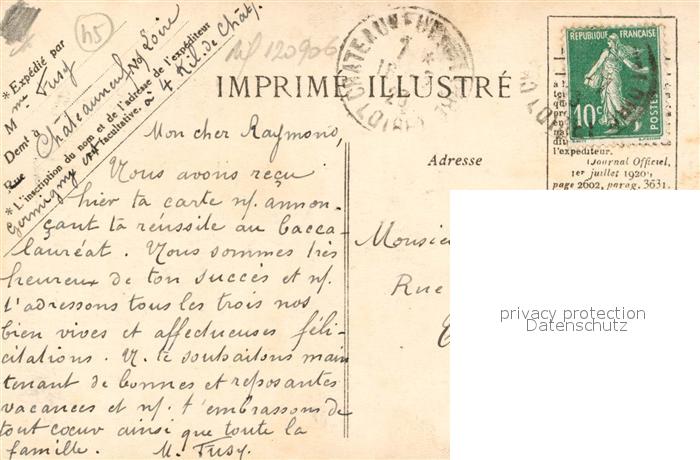 * Expédié par
Mme Fusy
Demt à Châteauneuf s/ Loire
Rue
N°
* L'inscription du nom et de l'adresse de l'expéditeur
est facultative.
Germigny à 4 Kil. de Châtf.
45
120906
IMPRIMÉ ILLUSTRÉ
RÉPUBLIQUE FRANÇAISE
10c
POSTES
l'expéditeur.
(Journal Officiel,
1er juillet 1920,
page 2602, parag. 3631.
Adresse
Mon cher Raymond,
Nous avons reçu
hier ta carte ns. annon-
çant ta réussite au bacca-
lauréat. Nous sommes très
heureux de ton succès et ns.
t'adressons tous les trois nos
bien vives et affectueuses féli-
citations. N. te souhaitons main
tenant de bonnes et reposantes
vacances et ns. t'embrassons de
tout coeur ainsi que toute la
famille. M. Fusy.
Monsieu
Rue
privacy protection
Datenschutz